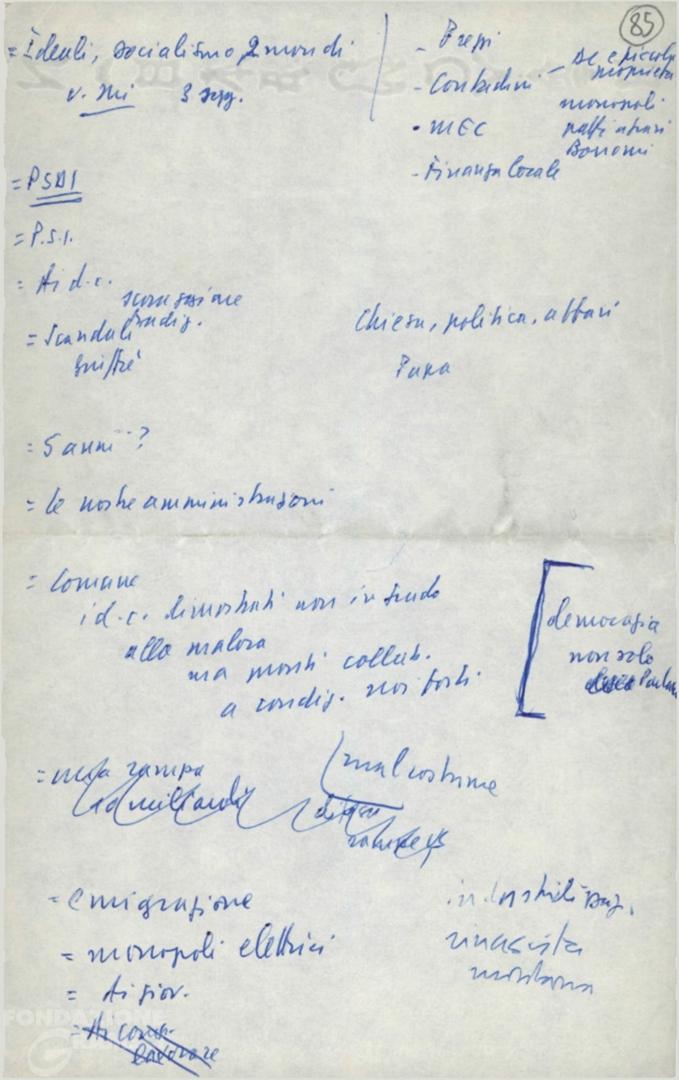 85
= Ideali, socialismo, 2 mondi
v. mi 3 sgg.
- Prezzi
- Contadini - DC e piccola proprietà
monopoli
patti agrari
Bonomi
- MEC
- Finanza locale
= PSDI
= P.S.I.
= Ai d.c.
= Scandali
Giuffrè
Chiesa, politica, affari
Papa
= 5 anni ?
= le nostre amministrazioni
= Comune
i d.c. dimostrati non in grado
alla malora
ma pronti collab.
a condiz. noi forti
democrazia
non solo
= una zampa
malcostume
= emigrazione
= monopoli elettrici
= Ai giov.
industrializzaz.
rinascita
montana
FONDAZIONE